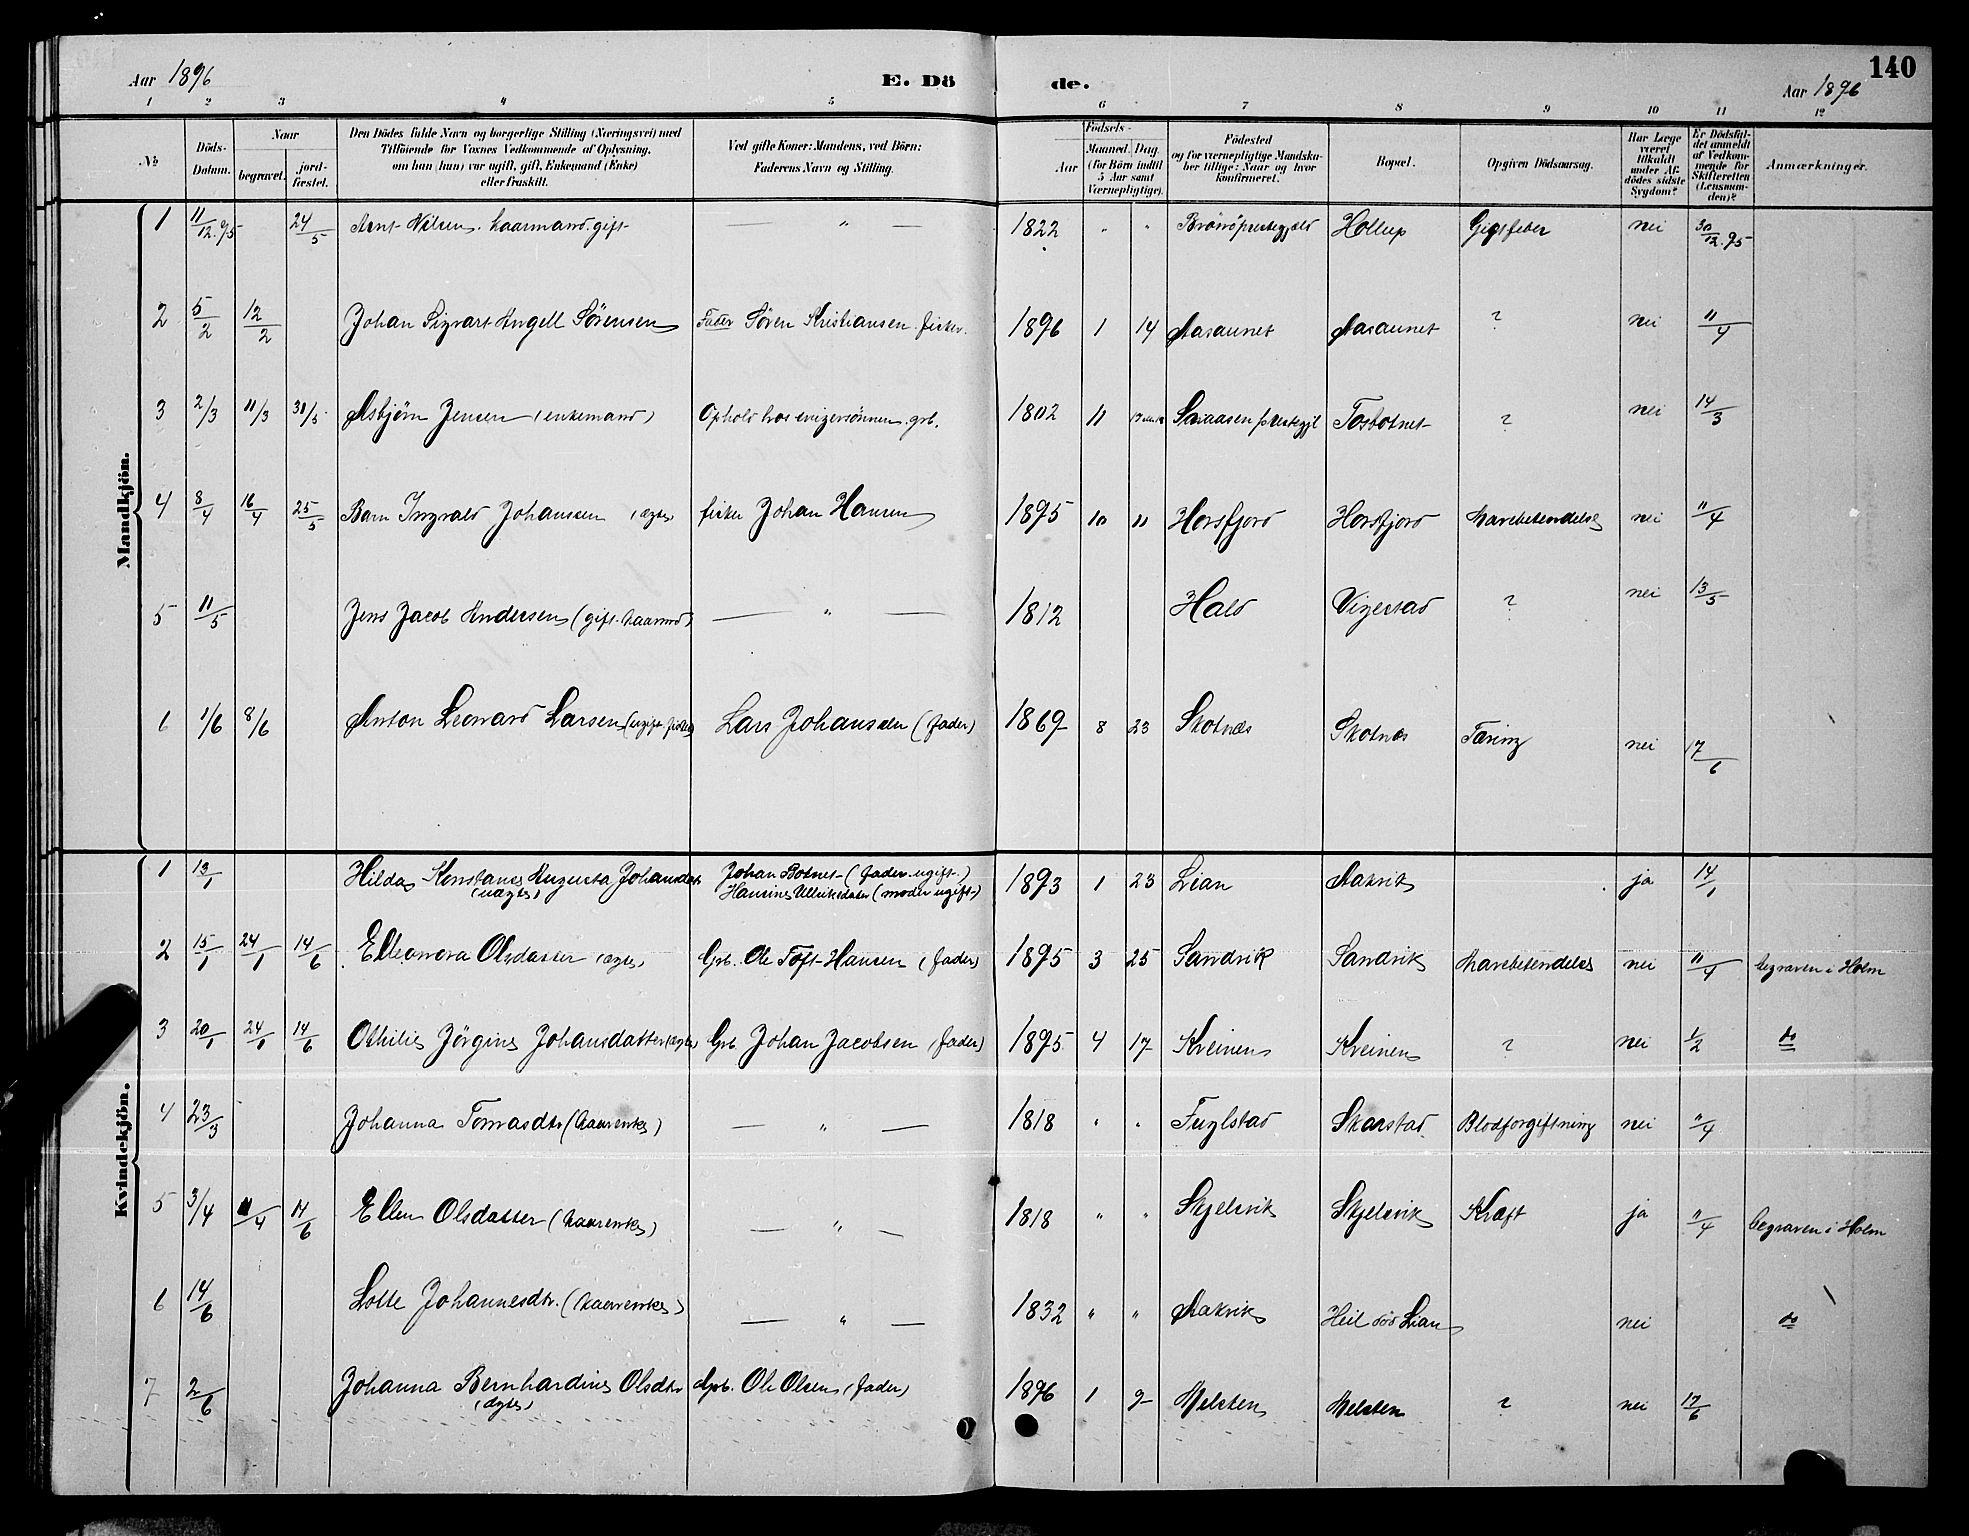 140
Aar 1896
E. Dö de.
Aar 1896
1 2 3 4 5 6 7 8 9 10 11 12
№
Döds-Datum.
Naar
begravet.
jord-fæstet.
Den Dödes fulde Navn og borgerlige Stilling (Næringsvei) med
Tilföiende for Voxnes Vedkommende af Oplysning,
om han (hun) var ugift, gift, Enkemand (Enke)
eller fraskilt.
Ved gifte Koner: Mandens, ved Börn:
Faderens Navn og Stilling.
Födsels-
Aar
Maaned. Dag.
(for Börn indtil
5 Aar samt
Værnepligtige).
Födested
og for værnepligtige Mandska-
ber tillige: Naar og hvor
konfirmeret.
Bopæl.
Opgiven Dödsaarsag.
Har Læge
været
tilkaldt
under Af-
dödes sidste
Sygdom?
Er Dödsfal-
det anmeldt
af Vedkom-
mende for
Skifteretten
(Lensman-
den)?
Anmærkninger.
Mandkjön.
1 11/12.95 24/5 Arnt Nilsen. kaarmand. gift — " — 1822 " " Brönö præstegjeld Hollup Gigtfeber nei 30/12.95
2 5/2 12/2 Johan Sigvart Angell Sörensen Fader Sören Kristiansen. fisker. 1896 1 14 Aasaunet Aasaunet ? nei 11/4
3 2/3 11/3 31/5 Asbjörn Jensen (enkemand) Ophold hos svigersönnen. grb. 1802 11 Snaasen præstegjl Tosbotnet ? nei 14/3
4 8/4 16/4 25/5 Barn Ingvald Johanssen (ægte) fisker Johan Hansen 1895 10 11 Horsfjord Horsfjord Mavebetendelse nei 11/4
5 11/5 Jens Jacob Andersen (gift. kaarmd) — " — 1812 Hald Vigestad ? nei 13/5
6 1/6 8/6 Anton Leonard Larsen (ugift. fisker) Lars Johanssen (fader) 1869 8 23 Skotnes Skotnes Tæring nei 17/6
Kvindekjön.
1 13/1 Hilda Konstance Augusta Johansdatr Johan Botnet (fader. ugift.) 1893 1 23 Lian Aakvik ja 14/1
(uægte) Hansine Ulriksdatter (moder ugift)
2 15/1 24/1 14/6 Elleonora Olsdatter (ægte) Grb. Ole Toft Hansen (fader) 1895 3 25 Sandvik Sandvik Mavebetendelse nei 11/4 begraven i Holm
3 20/1 24/1 14/6 Othilie Jörgine Johansdatter (ægte) Grb. Johan Jacobsen (fader) 1895 4 17 Kveinen Kveinen ? nei 1/2 do
4 23/3 Johanna Tomasdtr (kaarenke) — " — 1818 " " Fuglstad Skarstad Blodforgiftning nei 11/4
5 3/4 11/4 14/6 Ellen Olsdatter (kaarenke) — " — 1818 " " Skjelsvik Skjelsvik Kræft ja 11/4 begraven i Holm
6 14/6 Lotte Johannesdtr. (kaarenke) — " — 1832 " " Aakvik Heil död Lian nei do
7 2/6 Johanna Bernhardine Olsdtr Grb. Ole Olsen (fader) 1896 1 9 Melsten Melsten ? nei 17/6
(ægte)